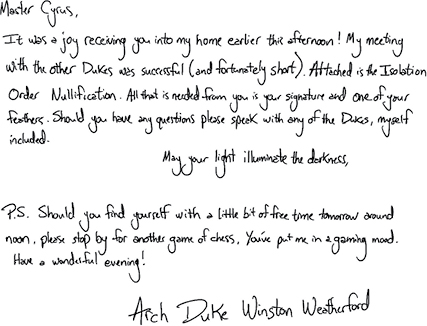 Master Cyrus,
It was a joy receiving you into my home earlier this afternoon! My meeting
with the other Dukes was successful (and fortunately short). Attached is the Isolation
Order Nullification. All that is needed from you is your signature and one of your
feathers. Should you have any questions please speak with any of the Dukes, myself
included.
May your light illuminate the darkness,
P.S. Should you find yourself with a little bit of free time tomorrow around
noon, please stop by for another game of chess, You've put me in a gaming mood.
Have a wonderful evening!
Arch Duke Winston Weatherford